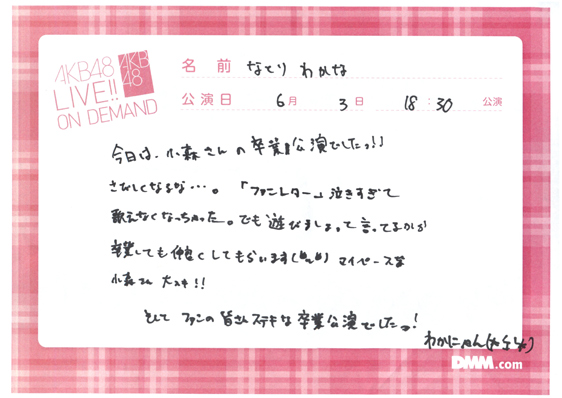 AKB48
LIVE!!
ON DEMAND
AKB
48
名前 なとり わかな
公演日 6月 3日 18:30 公演
今日は、小森さんの卒業公演でしたっ!!
さびしくなるな…。「ファンレター」泣きすぎて
歌えなくなっちゃった。でも遊びましょって言ってるから
卒業しても仲良くしてもらいます マイペースな
小森さん 大スキ!!
そして ファンの皆さんステキな卒業公演でしたっ!
わかにゃん
DMM.com